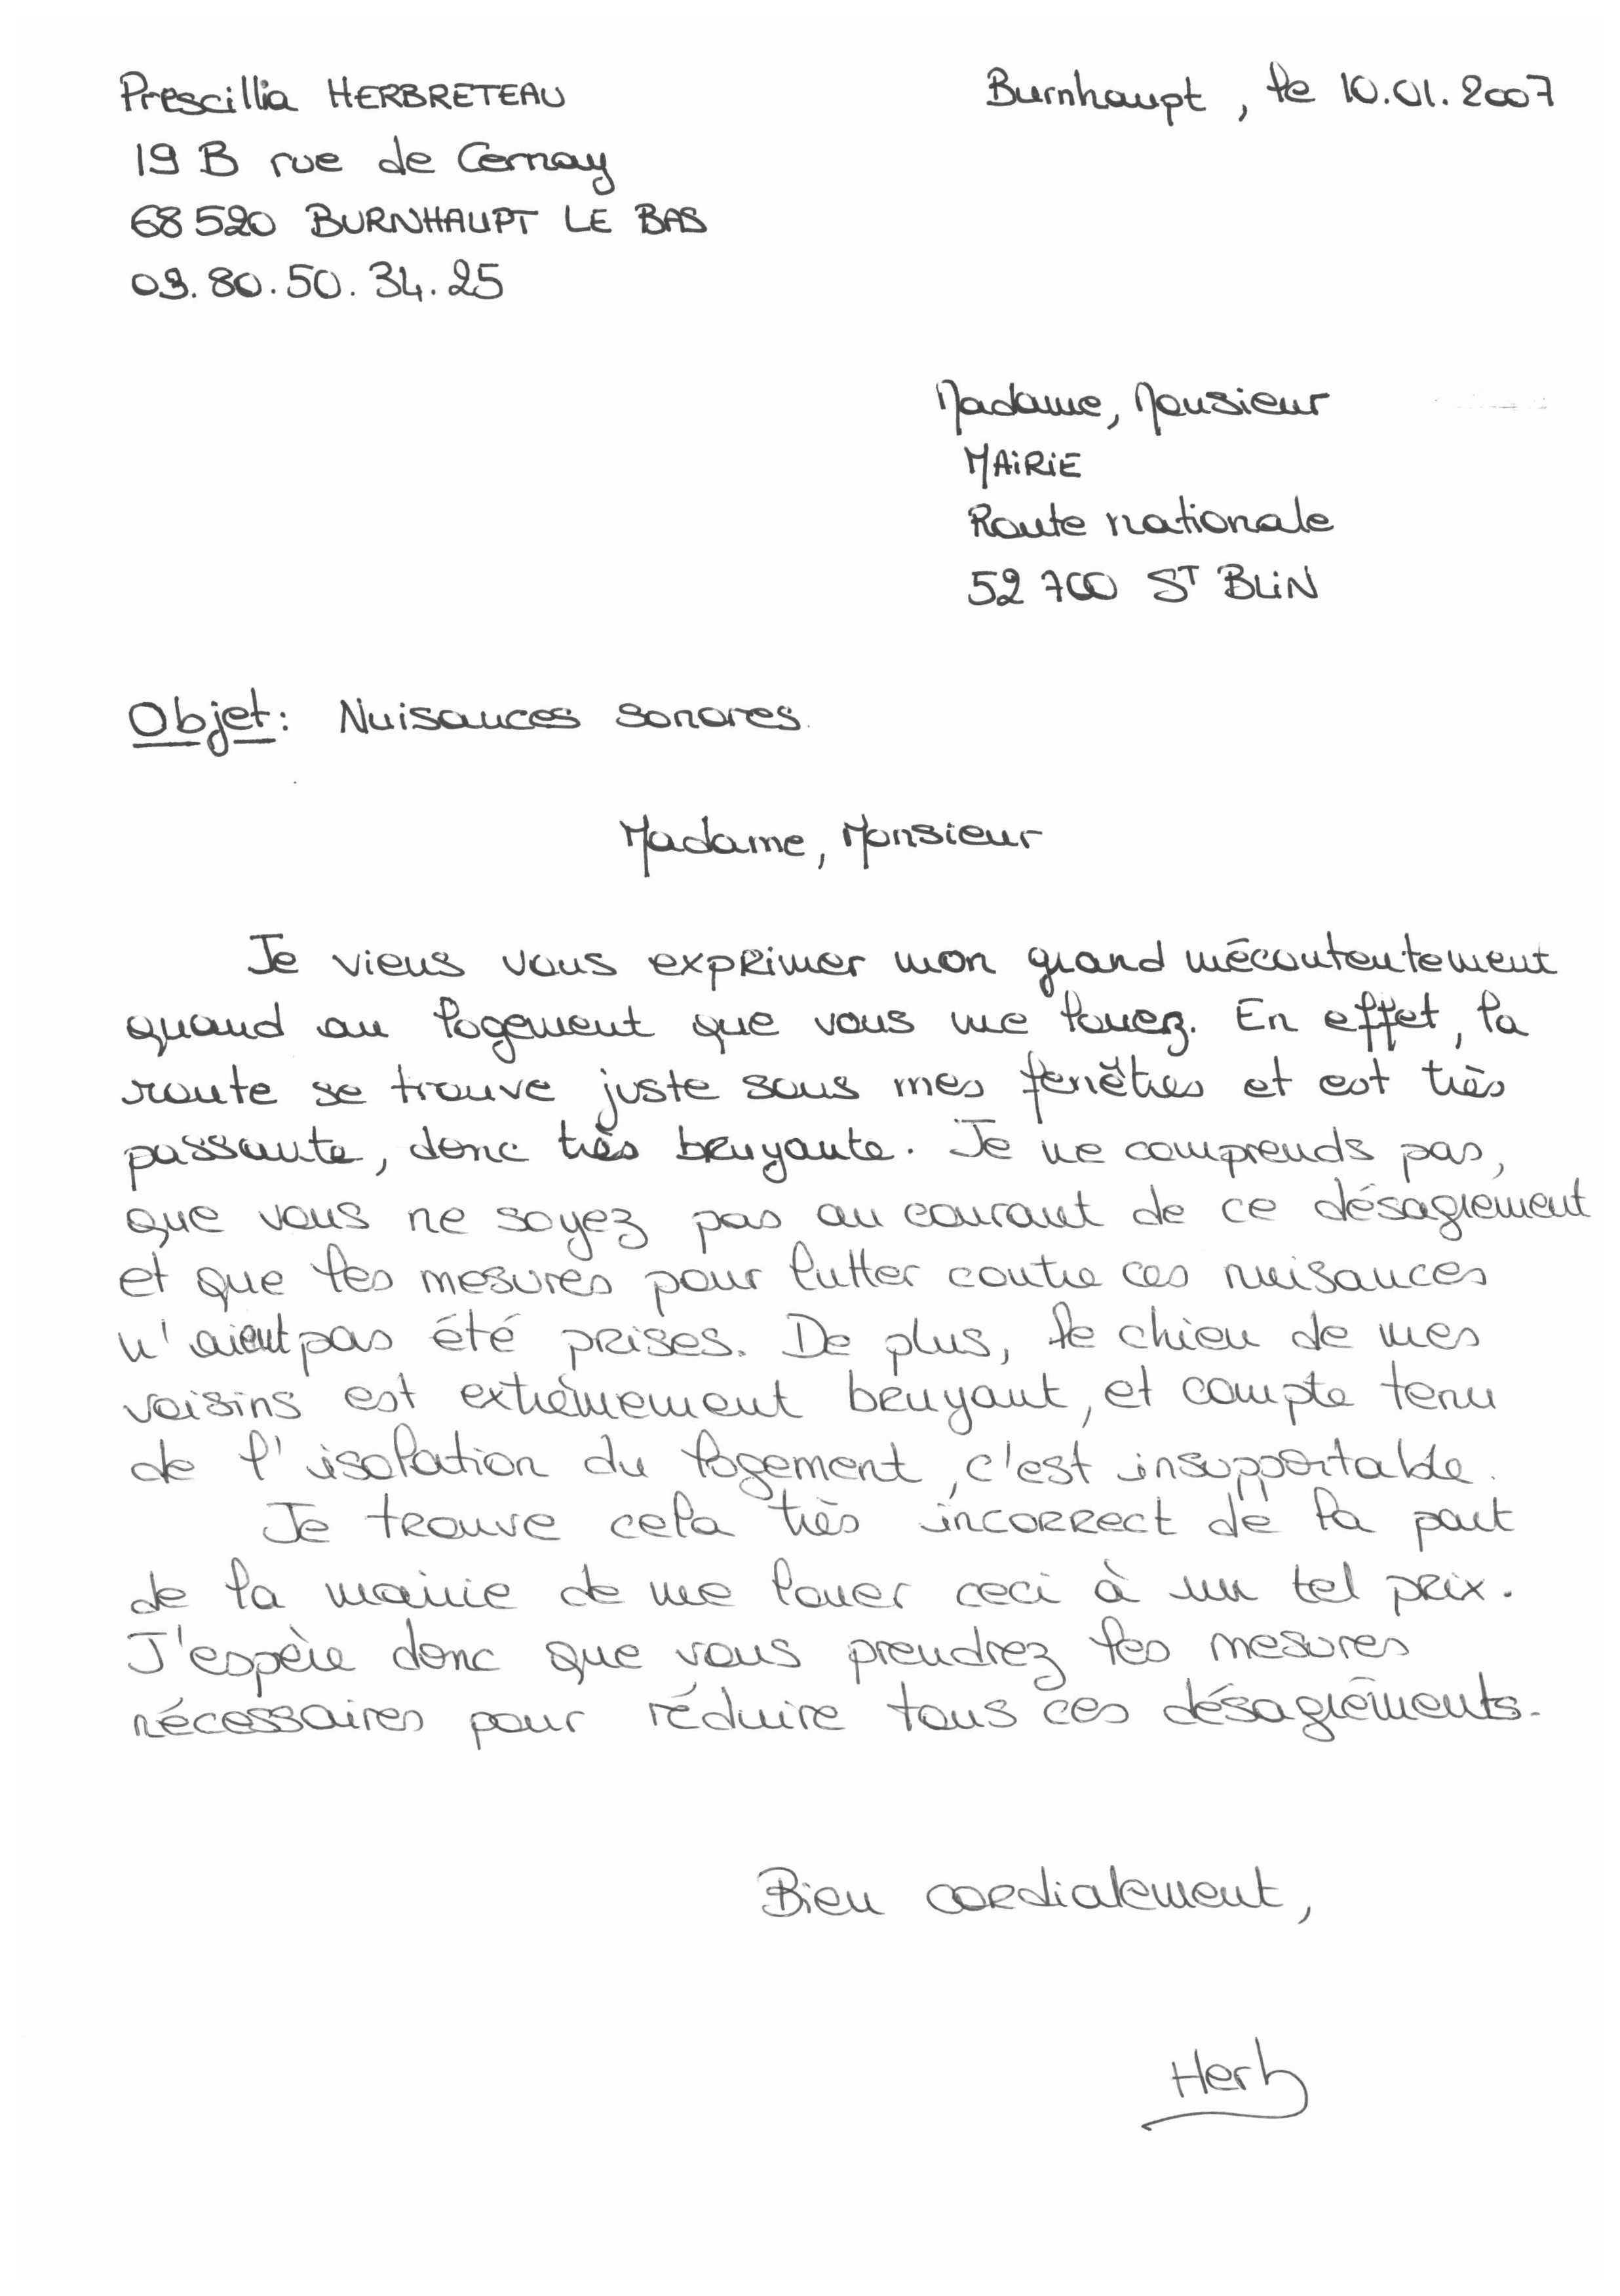 Prescillia HERBRETEAU
19 B rue de Cernay
68520 BURNHAUPT LE BAS
03.80.50.34.25
Burnhaupt, le 10.01.2007
Madame, Monsieur
MAiRiE
Route nationale
52 700 ST BLiN
Objet: Nuisances sonores.
Madame, Monsieur
Je viens vous exprimer mon grand mécontentement
quand au logement que vous me louez. En effet, la
route se trouve juste sous mes fenêtres et est très
passante, donc très bruyante. Je ne comprends pas,
que vous ne soyez pas au courant de ce désagrement
et que les mesures pour lutter contre ces nuisances
n'aient pas été prises. De plus, le chien de mes
voisins est extrêmement bruyant, et compte tenu
de l'isolation du logement, c'est insupportable.
Je trouve cela très incorrect de la part
de la mairie de me louer ceci à un tel prix.
J'espère donc que vous prendrez les mesures
nécessaires pour réduire tous ces désagrêments.
Bien cordialement,
Herb